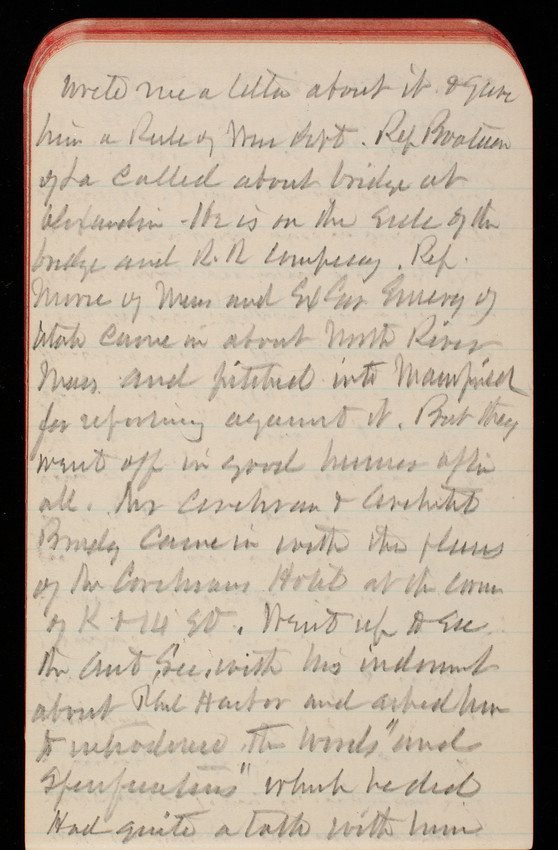 wrote me a letter about it & gave
him a Rule of War Dept. Rep Boatner
of La called about bridge at
Alexandria - He is on the side of the
bridge and R. R company. Rep.
Morse of Mass and Ex Gov Emery of
Utah came in about North River
Mass and pitched into Mansfield
for reporting against it. But they
went off in good humor after
all. Mr Cochran & Architect
Brady came in with the plans
of the Cochrans Hotel at the corner
of K & 14 St. Went up to see
the Asst Sec. with his indorsmt
about Phil Harbor and asked him
to introduce the words "and
Specifications" which he did
Had quite a talk with him